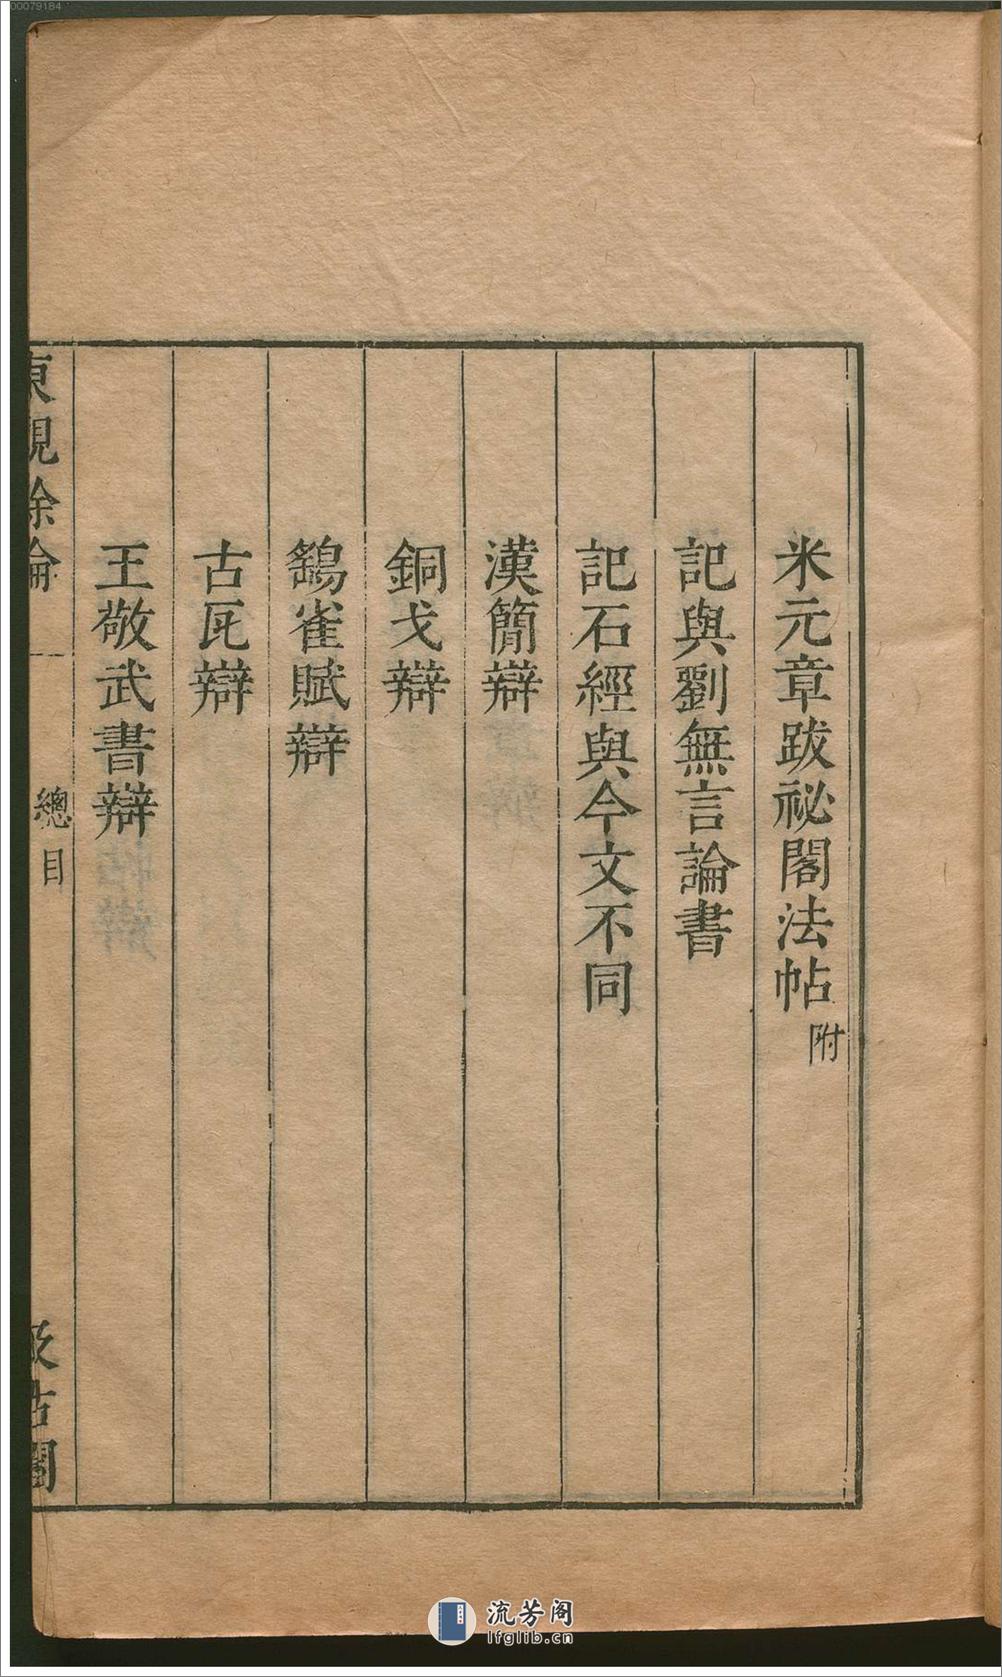 00079184
米元章跋祕閣法帖附
記與劉無言論書
記石經與今文不同
漢簡辯
銅戈辯
鷂雀賦辯
古瓦辯
王敬武書辯
東觀餘論
總目
汲古閣
流芳阁
lfglib.cn